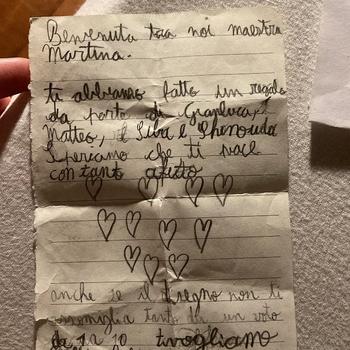 Benvenuta tra noi maestra
Martina.
ti abbiamo fatto un regalo
da parte di Gianluca,
Matteo, e Shenouda
Speriamo che ti piace
con tanto afetto
anche se il disegno non ti
somiglia tanto dai un voto
da 1 a 10 tivogliamo